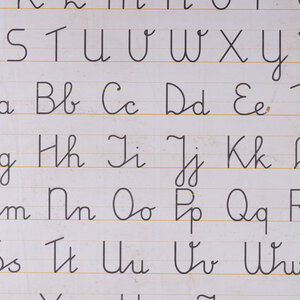 K L M N O P
S T U V W X Y
a Bb Cc Dd Ee
g Hh Ii Jj Kk
m Nn Oo Pp Qq R
Ss Tt Uu Vv Ww